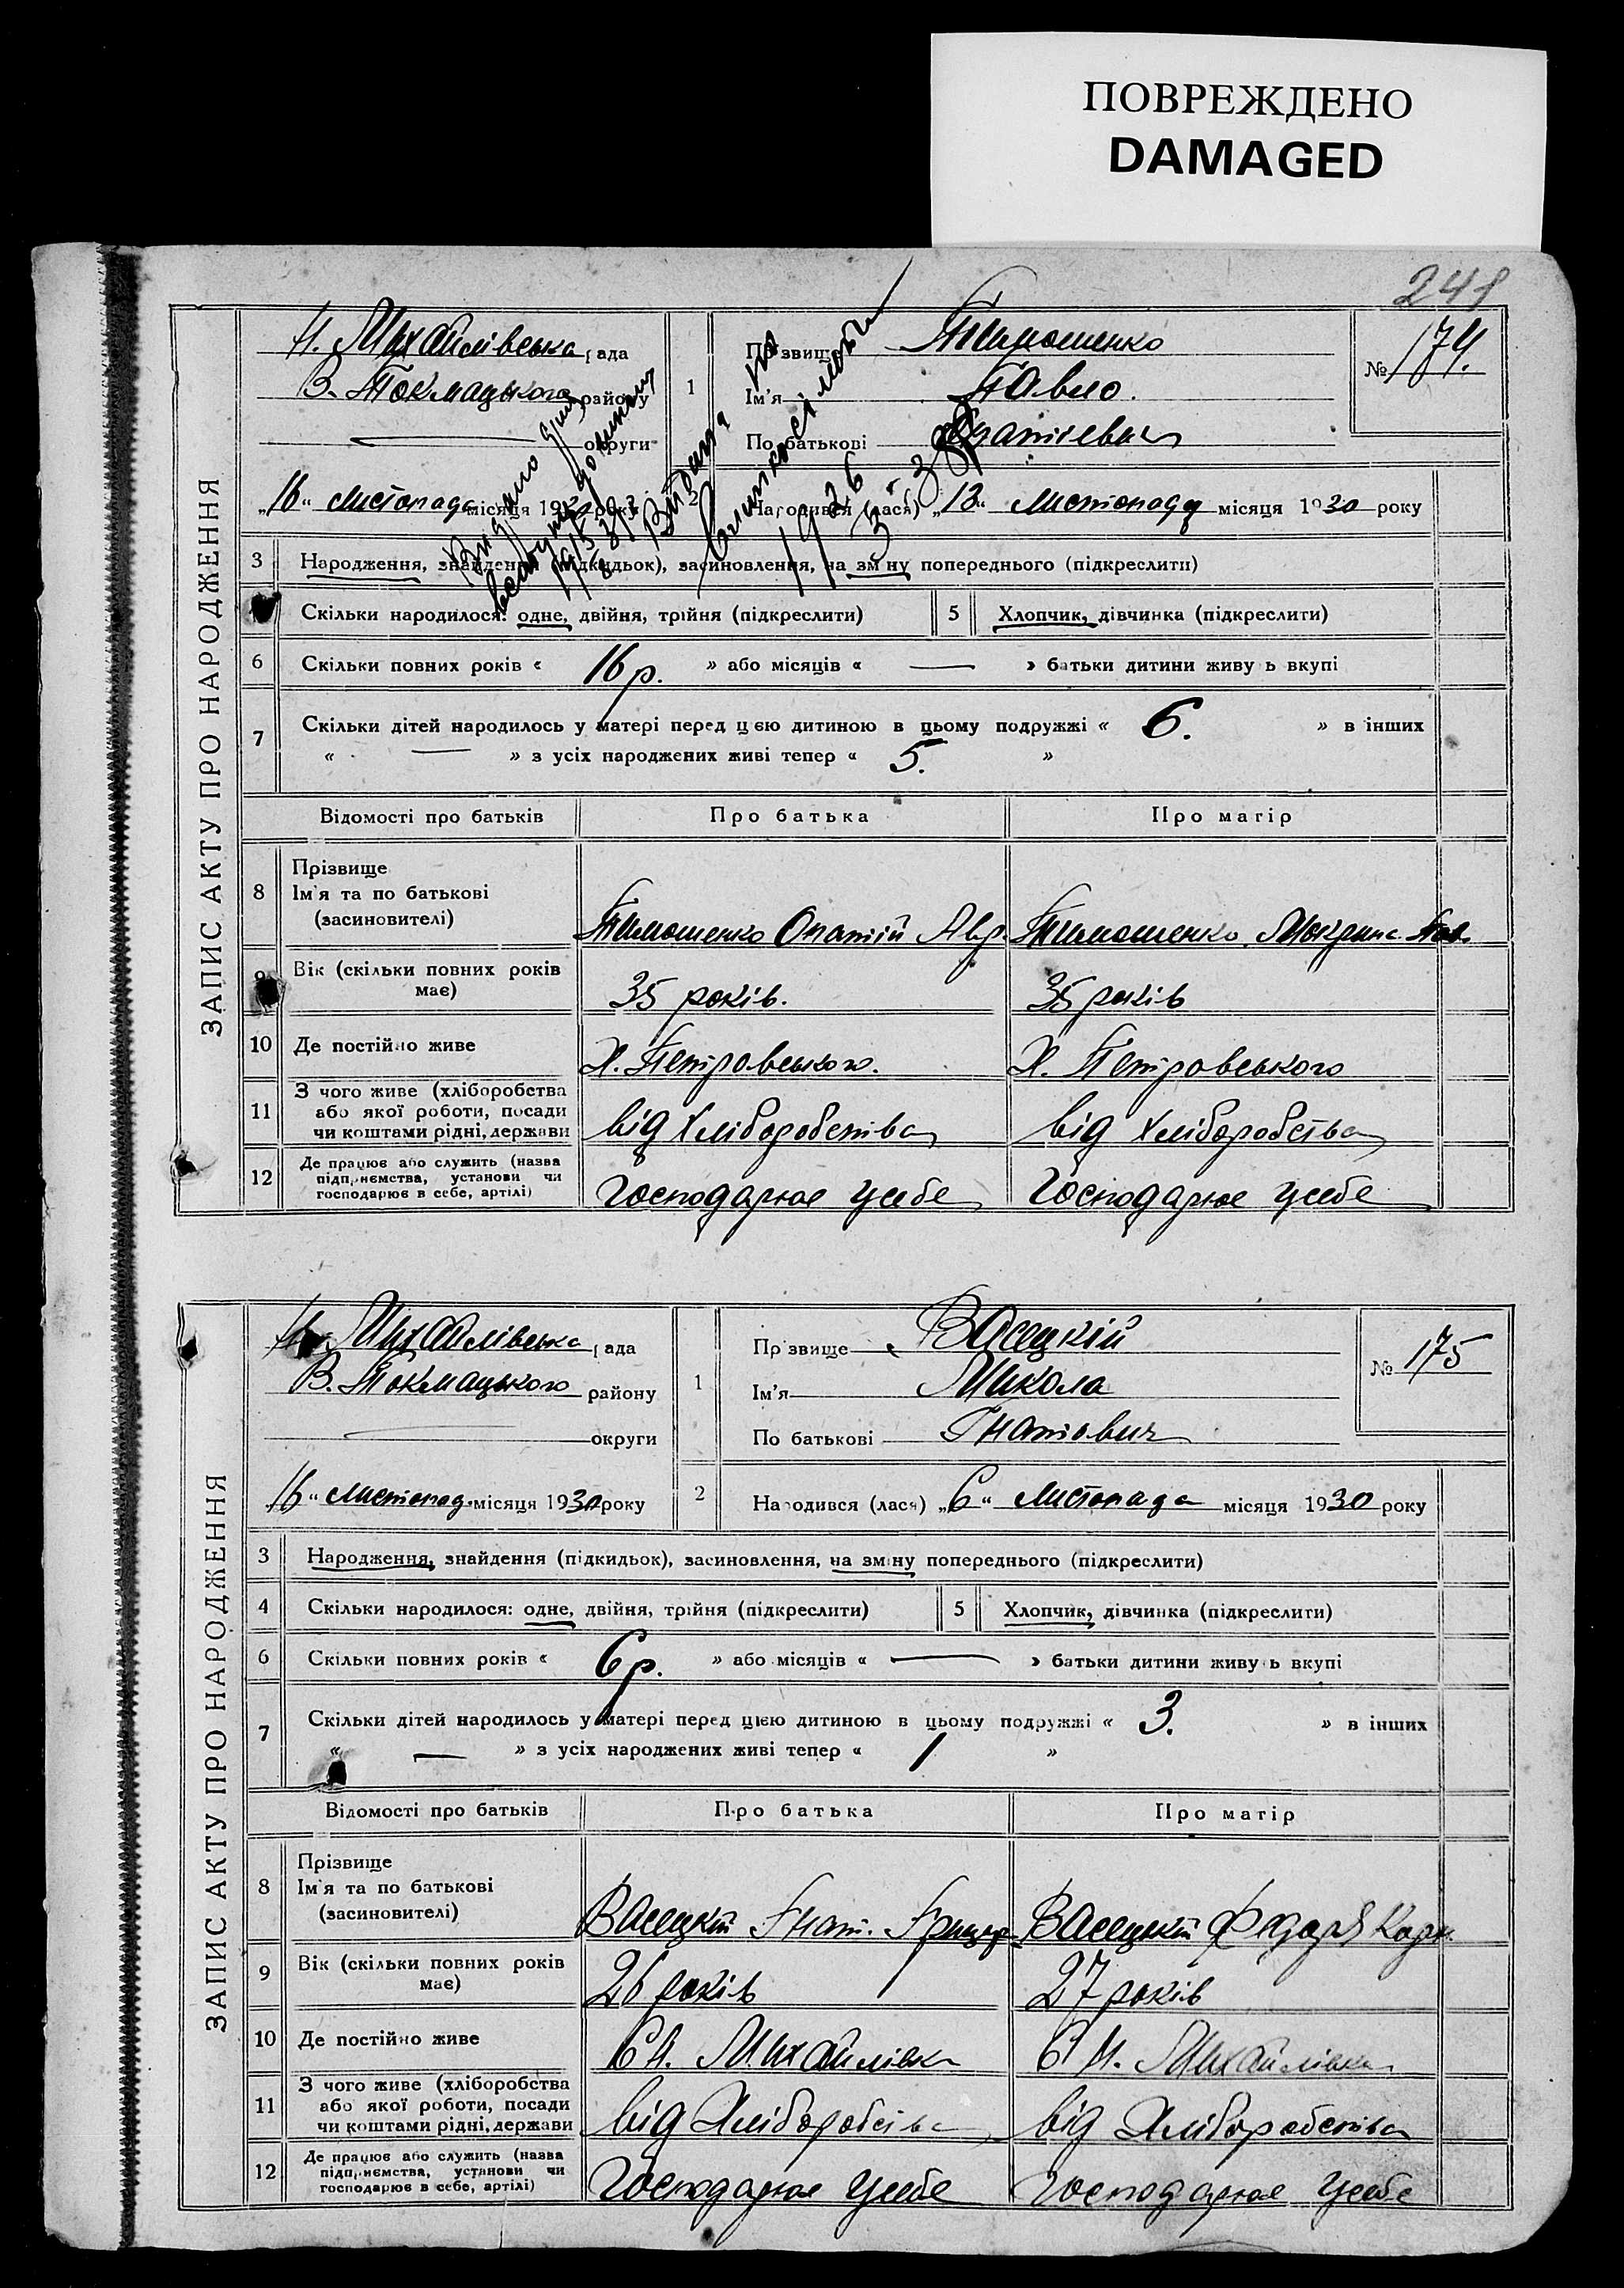 ПОВРЕЖДЕНО
DAMAGED
248
ЗАПИС АКТУ ПРО НАРОДЖЕННЯ
Н. Михайлівська рада
В. Токмацького району
округи
„16“ листопада місяця 1930 року
1
Прізвище Тимошенко
Ім'я Павло.
По батькові
№ 174.
2
Народився (лася) „13“ листопада місяця 1930 року
Видано
Видана
1926
3 Народження, знайдення (підкидьок), засиновлення, на зміну попереднього (підкреслити)
Скільки народилося: одне, двійня, трійня (підкреслити) 5 Хлопчик, дівчинка (підкреслити)
6 Скільки повних років « 16 р. » або місяців « — » батьки дитини живуть вкупі
7 Скільки дітей народилось у матері перед цією дитиною в цьому подружжі « 6. » в інших
« — » з усіх народжених живі тепер « 5. »
Відомості про батьків Про батька Про матір
8 Прізвище
Ім'я та по батькові
(засиновителі)
Тимошенко Опатій Авр. Тимошенко Мокрина Пав.
9 Вік (скільки повних років має) 35 років. 35 років
10 Де постійно живе Х. Петровського. Х. Петровського
11 З чого живе (хліборобства
або якої роботи, посади
чи коштами рідні, держави
від хліборобства від хліборобства
12 Де працює або служить (назва
підприємства, установи чи
господарює в себе, артілі)
Господарює усебе Господарює усебе
ЗАПИС АКТУ ПРО НАРОДЖЕННЯ
Н. Михайлівська рада
В. Токмацького району
округи
„16“ листопад. місяця 1930 року
1
Прізвище Васецкій
Ім'я Микола
По батькові Гнатович
№ 175
2
Народився (лася) „6“ листопада місяця 1930 року
3 Народження, знайдення (підкидьок), засиновлення, на зміну попереднього (підкреслити)
4 Скільки народилося: одне, двійня, трійня (підкреслити) 5 Хлопчик, дівчинка (підкреслити)
6 Скільки повних років « 6 р. » або місяців « — » батьки дитини живуть вкупі
7 Скільки дітей народилось у матері перед цією дитиною в цьому подружжі « 3. » в інших
« — » з усіх народжених живі тепер « 1 »
Відомості про батьків Про батька Про матір
8 Прізвище
Ім'я та по батькові
(засиновителі)
Васецкій Гнат. Грицор. Васецькій Федора Карп.
9 Вік (скільки повних років має) 26 років 27 років
10 Де постійно живе С Н. Михайлівка С Н. Михайлівка
11 З чого живе (хліборобства
або якої роботи, посади
чи коштами рідні, держави
від Хліборобства від Хліборобства
12 Де працює або служить (назва
підприємства, установи чи
господарює в себе, артілі)
Господарює усебе Господарює усебе